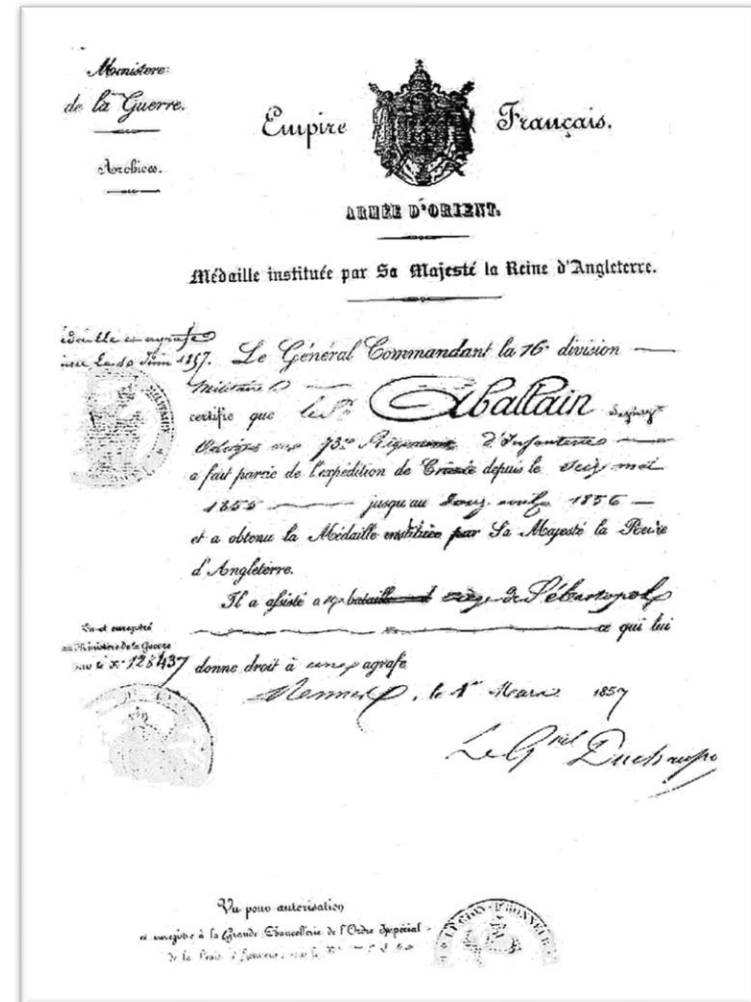 Ministere
de la Guerre.
Archives.
Empire Français.
ARMÉE D'ORIENT.
Médaille instituée par Sa Majesté la Reine d'Angleterre.
Médaille et agrafe
Juin 1857.
Le Général Commandant la 16e division
militaire
certifie que le Sr Aballain
au 73e Régiment d'Infanterie
a fait partie de l'expédition de Crimée depuis le seize mai
1855 jusqu'au douze avril 1856
et a obtenu la Médaille instituée par Sa Majesté la Reine
d'Angleterre.
Il a assisté au siège de Sébastopol
ce qui lui
Vu et enregistré
au Ministère de la Guerre
sous le No 128437
donne droit à une agrafe
Rennes, le 1er Mars 1857
Le Gnal
Vu pour autorisation
et enregistré à la Grande Chancellerie de l'Ordre Impérial
de la
LÉGION D'HONNEUR